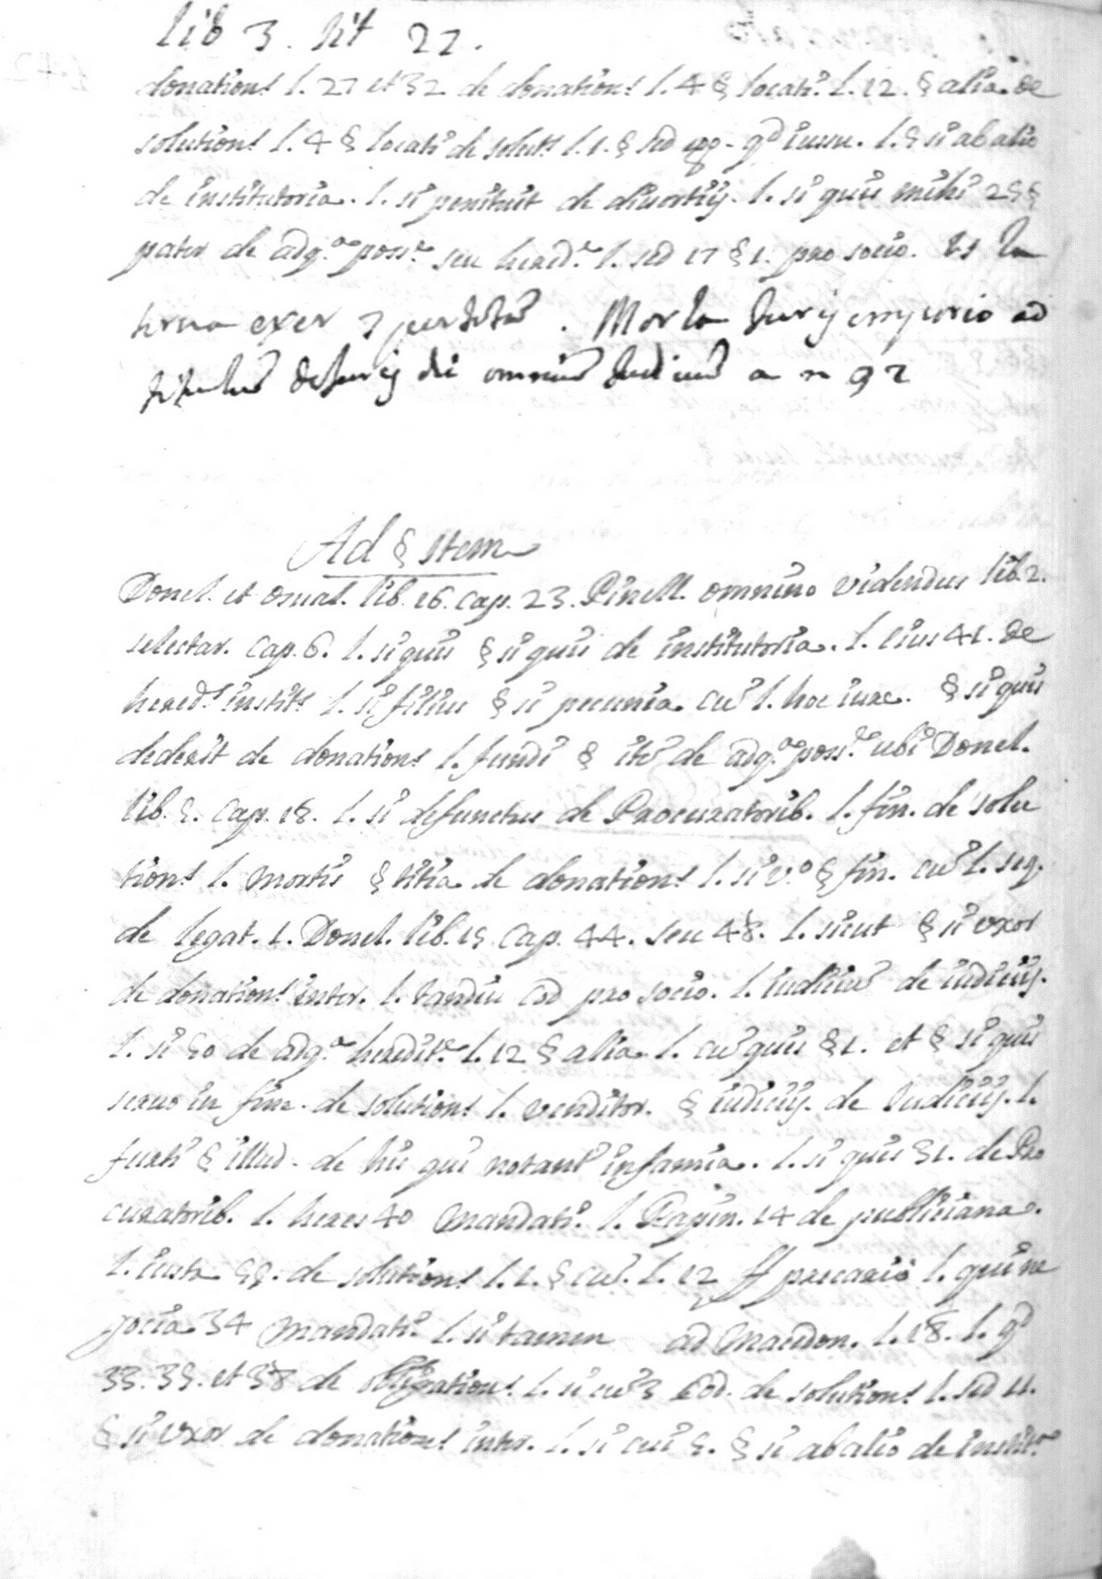 lib 3. tit 22.
donations l. 27 et 32 de donations l. 4 § locati. l. 12. § alia. de
solutions l. 4 § locati de soluts l. 1. § sed qd iussu. l. § si ab alio
de institutoria. l. si penituit de divortijs. l. si quis mihi 25 §
pater de adq.ª poss.e seu hered.e l. sed 17 § 1. pro socio. la
exer Morla Jurij emporio ad
titulus de Jurij di omnium Judicum a n 92
Ad § Item
Donel. et osuat. lib. 16. cap. 23. Pinell. omnino videndus lib. 2.
selectar. cap. 6. l. si quis § si quis de institutoria. l. eius 41. de
hereds instits l. si filius § si pecunia cu l. hoc iure. § si quis
dederit de donations l. fundi § ite de adq.ª poss.e ubi Donel.
lib. 5. cap. 18. l. si defunctus de Procuratorib. l. fin. de solu
tions l. mortis § titia de donations l. si v.º § fin. cu l. seq.
de legat. 1. Donel. lib. 15 cap. 44. seu 48. l. sicut § si uxor
de donations inter. l. tandiu Cod pro socio. l. iudiciu de iudicijs.
l. si 50 de adq.ª heredit.e l. 12 § alia l. cu quis § 1. et § si quis
servo in fine. de solutions l. venditor. § iudicijs. de Iudicijs. l.
furti § illud. de his qui notant infamia. l. si quis 31. de Pro
curatorib. l. heres 40 mandati. l. Papin. 14 de publiciana.
l. iusta 55. de solutions l. 1. § cu. l. 12 ff precario l. qui ne
gocia 34 mandati. l. si tamen ad Macedon. l. 18. l. qd
33. 35. et 38 de obligations. l. si cu 3 Cod. de solutions l. sed 11.
§ si uxor de donations inter. l. si cui 5. § si ab alio de instit.ª